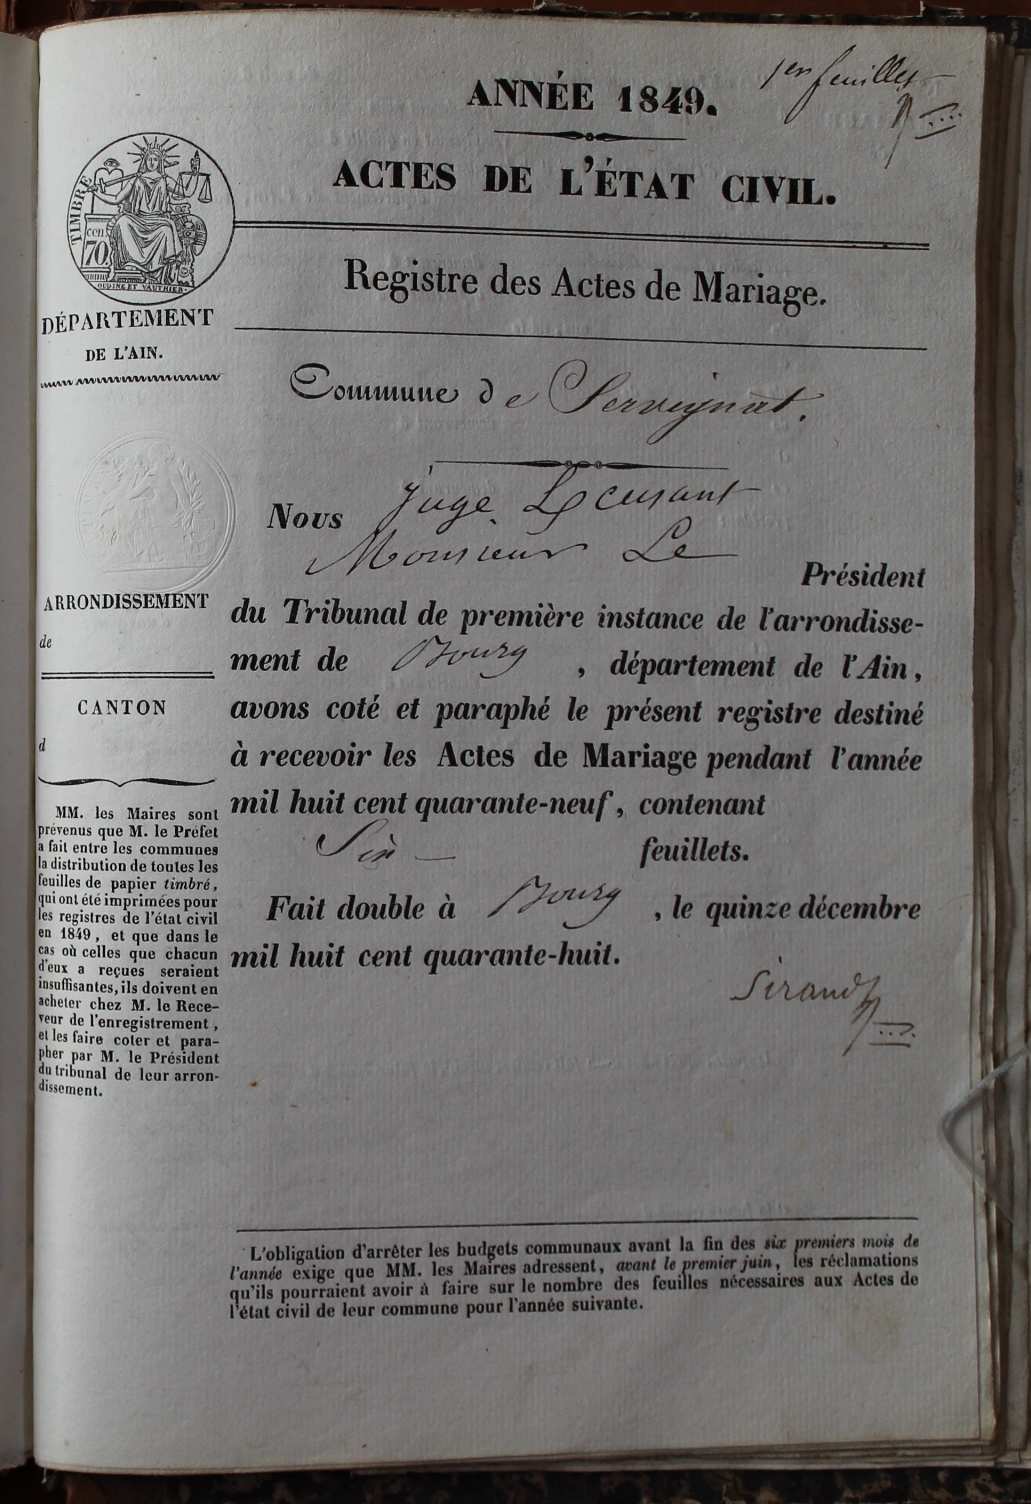 1er feuillet
ANNÉE 1849.
ACTES DE L'ÉTAT CIVIL.
TIMBRE
cen
70
OUDINÉ ET VAUTHIER
DÉPARTEMENT
DE L'AIN.
Registre des Actes de Mariage.
Commune de Servignat.
ARRONDISSEMENT
de
CANTON
d
MM. les Maires sont
prévenus que M. le Préfet
a fait entre les communes
la distribution de toutes les
feuilles de papier timbré,
qui ont été imprimées pour
les registres de l'état civil
en 1849, et que dans le
cas où celles que chacun
d'eux a reçues seraient
insuffisantes, ils doivent en
acheter chez M. le Rece-
veur de l'enregistrement,
et les faire coter et para-
pher par M. le Président
du tribunal de leur arron-
dissement.
Nous Juge
Monsieur Le
Président
du Tribunal de première instance de l'arrondisse-
ment de Bourg, département de l'Ain,
avons coté et paraphé le présent registre destiné
à recevoir les Actes de Mariage pendant l'année
mil huit cent quarante-neuf, contenant
Six feuillets.
Fait double à Bourg, le quinze décembre
mil huit cent quarante-huit.
Sirand
L'obligation d'arrêter les budgets communaux avant la fin des six premiers mois de
l'année exige que MM. les Maires adressent, avant le premier juin, les réclamations
qu'ils pourraient avoir à faire sur le nombre des feuilles nécessaires aux Actes de
l'état civil de leur commune pour l'année suivante.